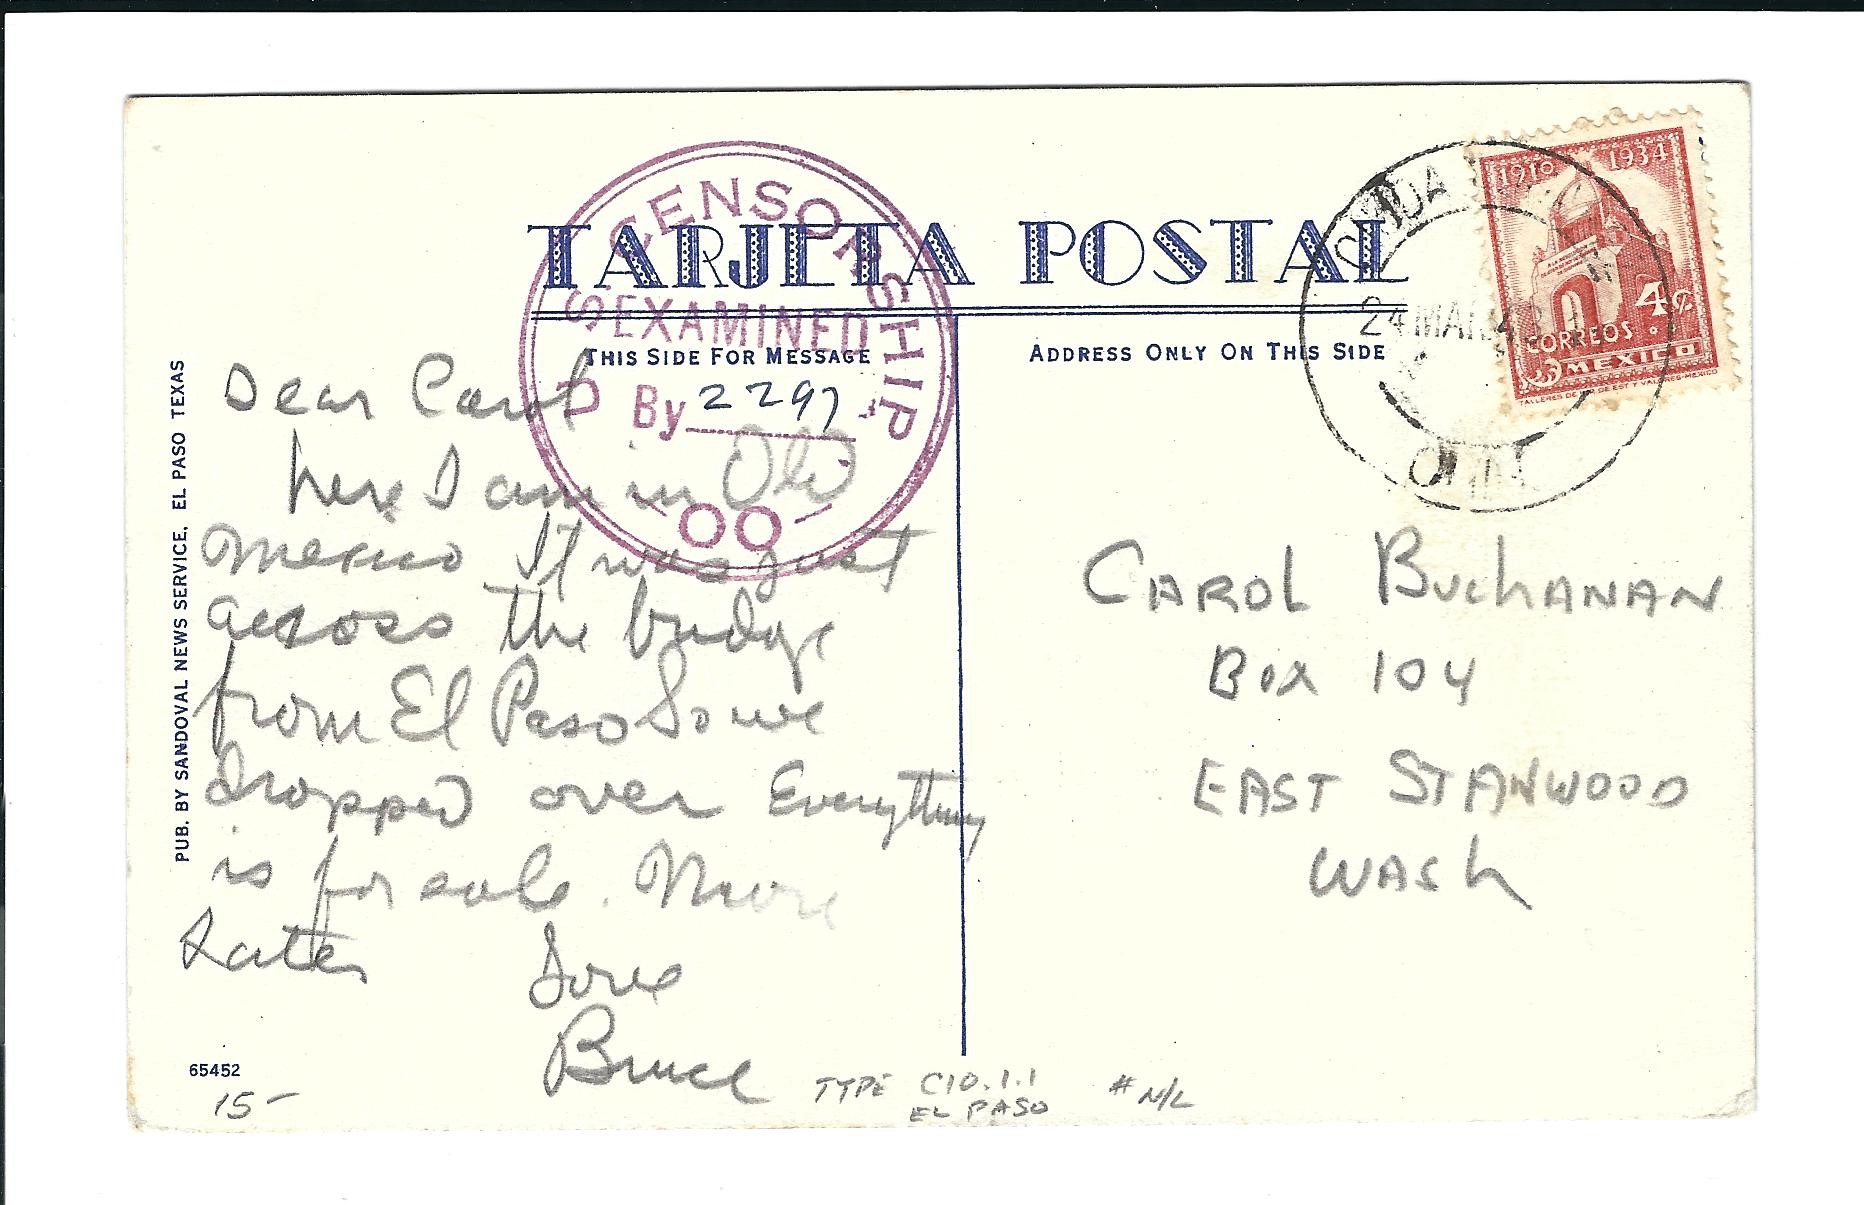 TARJETA POSTAL
THIS SIDE FOR MESSAGE
ADDRESS ONLY ON THIS SIDE
U S CENSORSHIP
EXAMINED
By 2297
OO
Dear Carol
here I am in Old
Mexico It was just
across the bridge
from El Paso So we
dropped over Everything
is for sale. More
Later
Love
Bruce
1910 1934
4¢
CORREOS
MEXICO
24 MAR
CHIH
CAROL BUCHANAN
Box 104
EAST STANWOOD
WASh
PUB. BY SANDOVAL NEWS SERVICE, EL PASO TEXAS
65452
15-
TYPE C10.1.1
EL PASO
# N/L